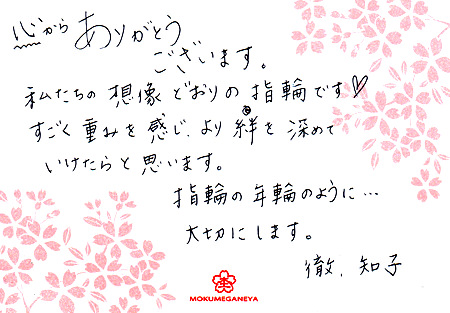 心から ありがとう
ございます。
私たちの 想像 どおりの 指輪です♡
すごく 重みを 感じ、より 絆を 深めて
いけたらと 思います。
指輪の 年輪のように…
大切にします。
徹、知子
MOKUMEGANEYA